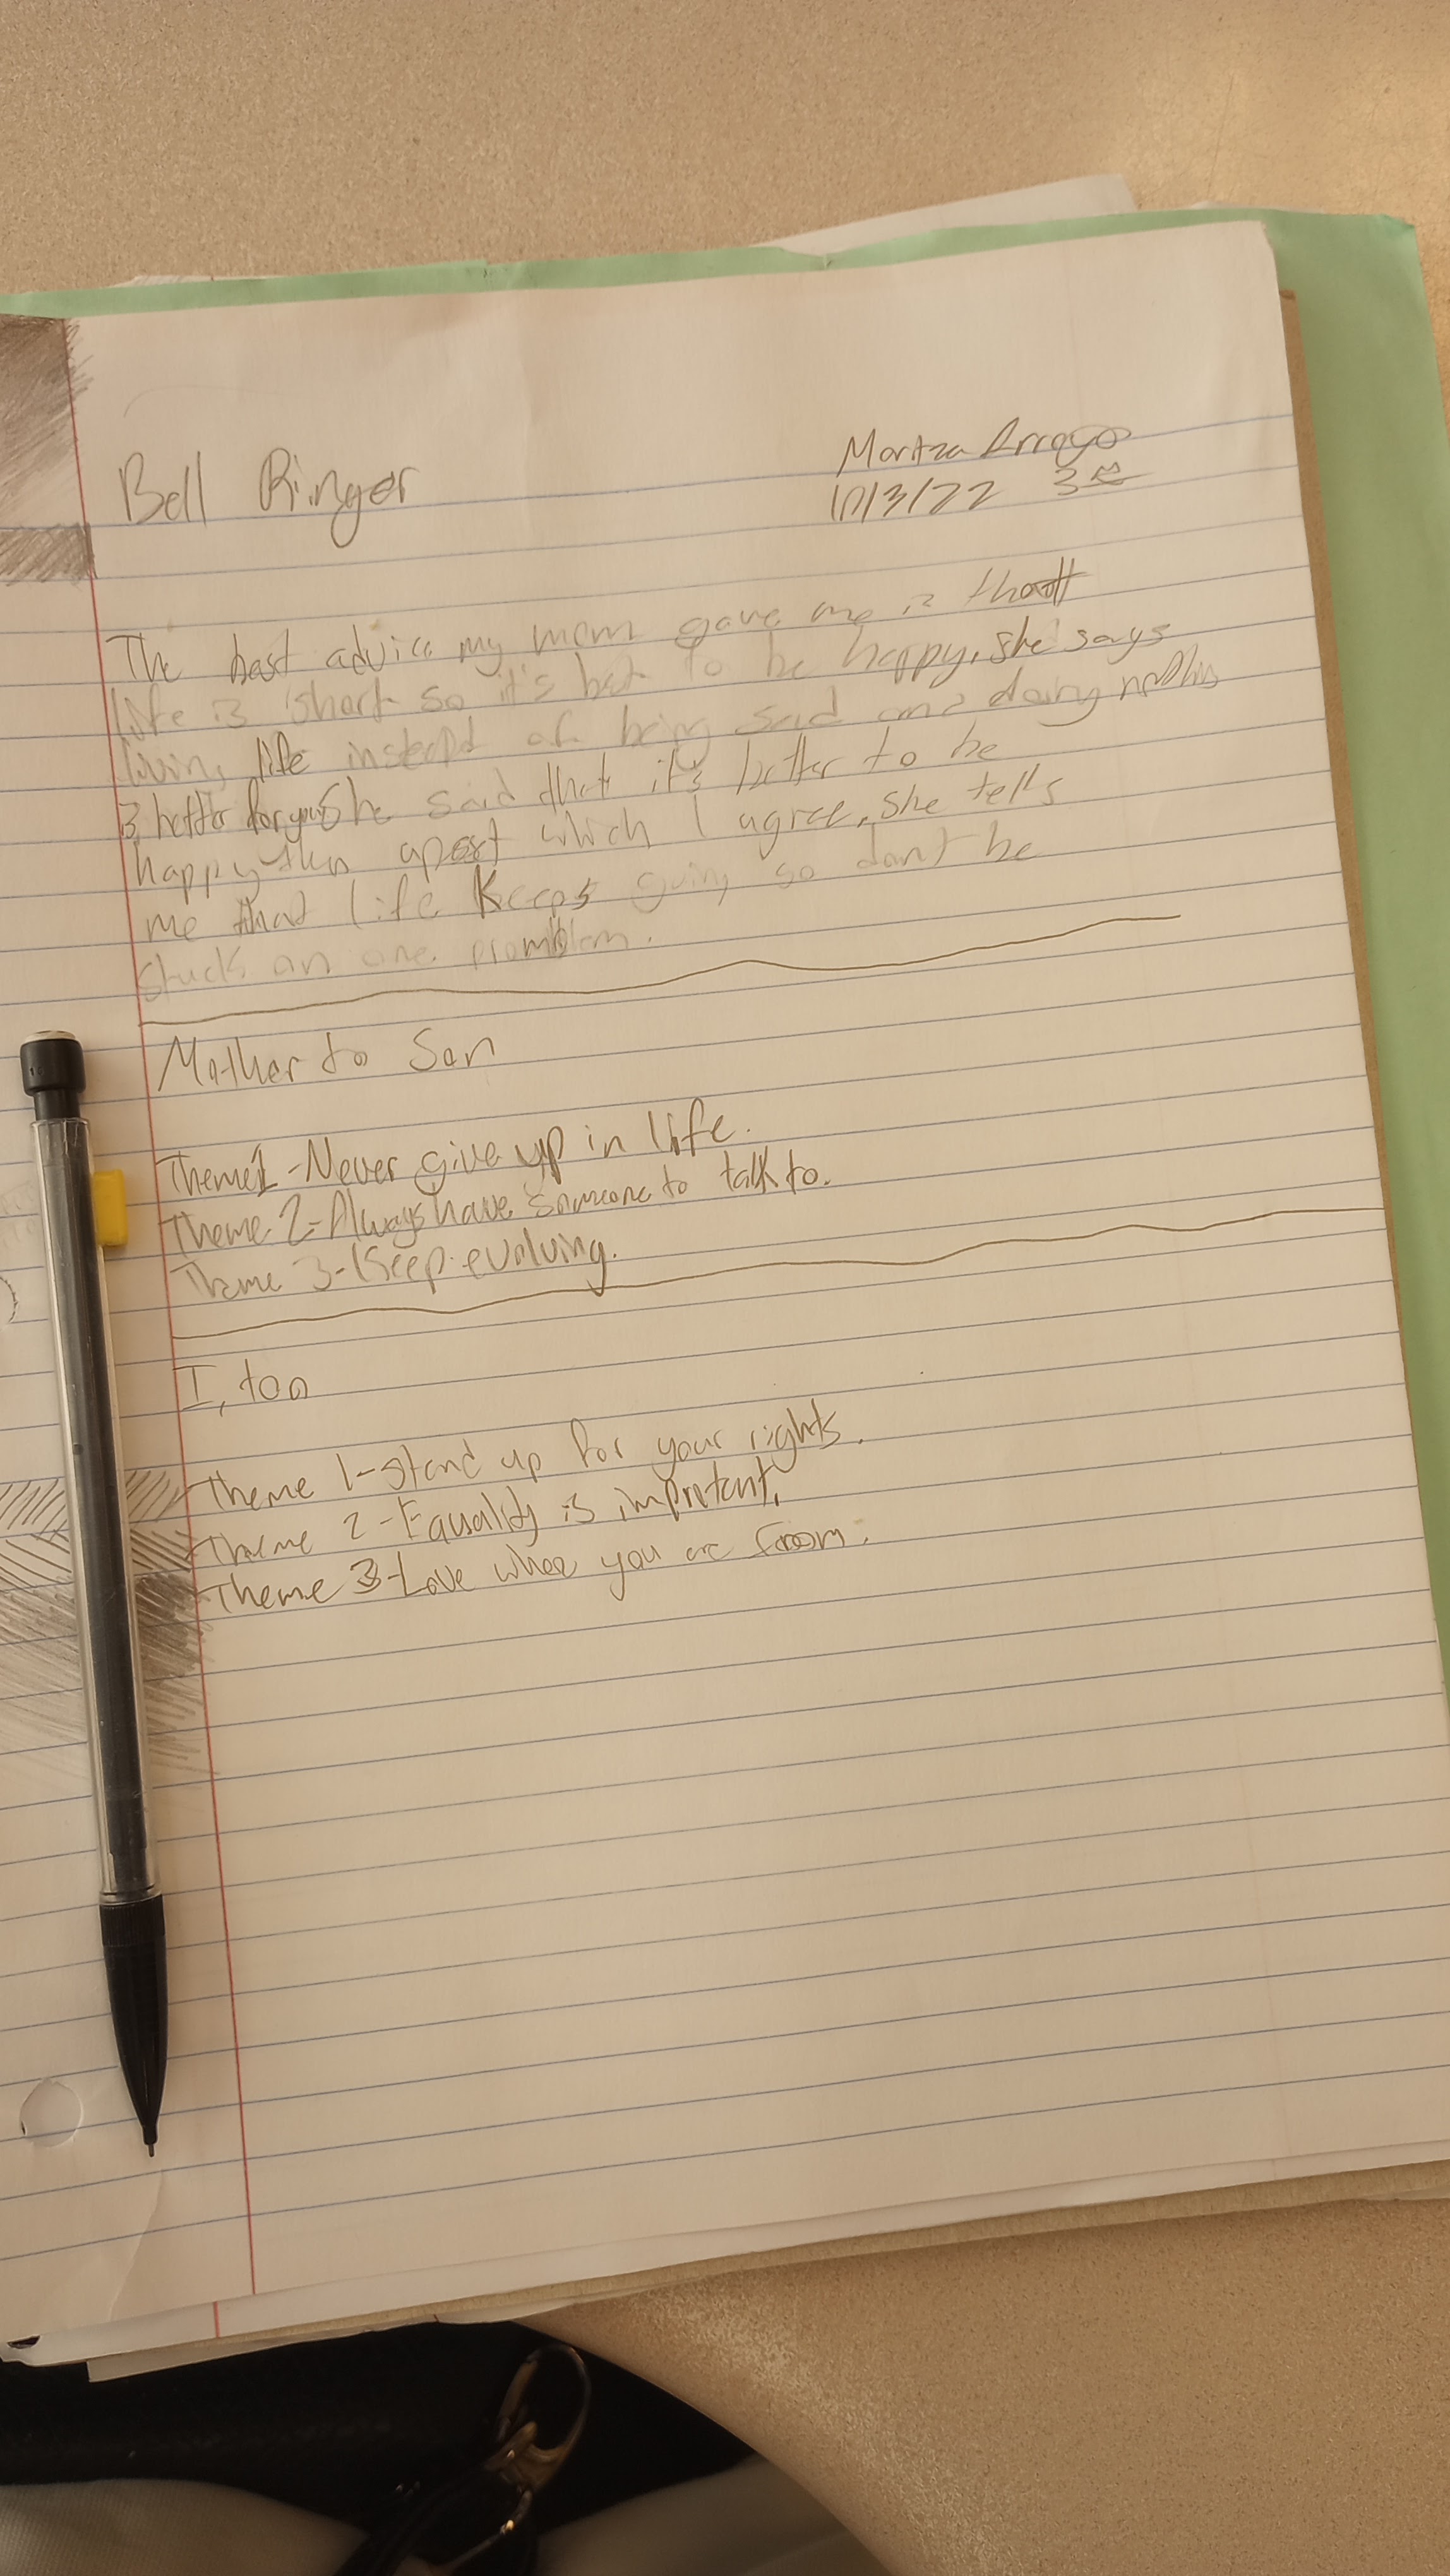 Bell Ringer
Maritza Arroyo
10/3/22 3
The best advice my mom gave me is that
life is short so it's bet to be happy, she says
living life insteed of being said and doing nothing
is better for you She said that it's better to be
happy then apart which I agree, she tells
me that life keeps going so don't be
stuck on one problem.
Mother to Son
Theme 1 - Never give up in life.
Theme 2 - Always have someone to talk to.
Theme 3 - Keep evolving.
I, too
Theme 1 - stand up for your rights.
Theme 2 - Equality is impretant.
Theme 3 - Love wher you are from.